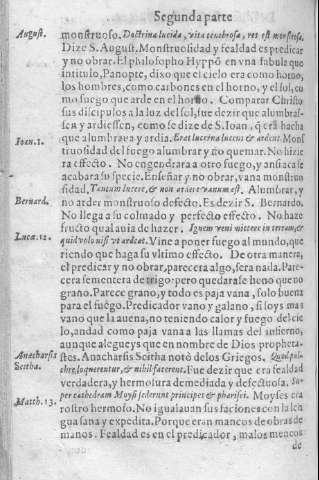 Segunda parte
August.
monstruoso. Doctrina lucida, vita tenebrosa, res est monstrosa.
Dize S. August. Monstruosidad y fealdad es predicar
y no obrar. El philosopho Hyppō en vna fabula que
intitulo, Panopte, dixo que el cielo era como horno,
los hombres, como carbones en el horno, y el sol, co
mo fuego que arde en el horno. Comparar Christo
sus discipulos a la luz del sol, fue dezir que alumbras-
sen y ardiessen, como se dize de S. Ioan, q̄ era hacha
Ioan. 1.
que alumbraua y ardia. Erat lucerna lucens & ardens. Mons
truosidad del fuego alumbrar y no quemar. No hizie
ra effecto. No engendrara a otro fuego, y ansi aca se
acabara su specie. Enseñar y no obrar, vana monstruo
sidad. Tantum lucere, & non ardere vanum est. Alumbrar, y
Bernard.
no arder monstruoso defecto. Es dezir S. Bernardo.
No llega a su colmado y perfecto effecto. No haze
fructo qual auia de hazer. Ignem veni mittere in terram, &
Luca. 12.
quid volo nisi vt ardeat. Vine a poner fuego al mundo, que
riendo que haga su vltimo effecto. De otra manera,
el predicar y no obrar, parecera algo, sera nada. Pare-
cera sementera de trigo: pero quedarase heno que no
grano. Parece grano, y todo es paja vana, solo buena
para el fuego. Predicador vano y galano, si loys mas
vano que la auena, no teniendo calor y fuego del cie
lo, andad como paja vana a las llamas del infierno,
aunque alegueys que en nombre de Dios propheta-
Anacharsis
Scitha.
stes. Anacharsis Scitha notò de los Griegos. Quod pul-
chre, loquerentur, & nihil facerent. Fue dezir que era fealdad
verdadera, y hermosura demediada y defectuosa. Su-
Matth. 13.
per cathedram Moysi sederunt principes & pharisei. Moyses era
rostro hermoso. No igualauan sus faciones con la len
gua sana y expedita. Porque eran mancos de obras de
manos. Fealdad es en el predicador, malos menéos
de